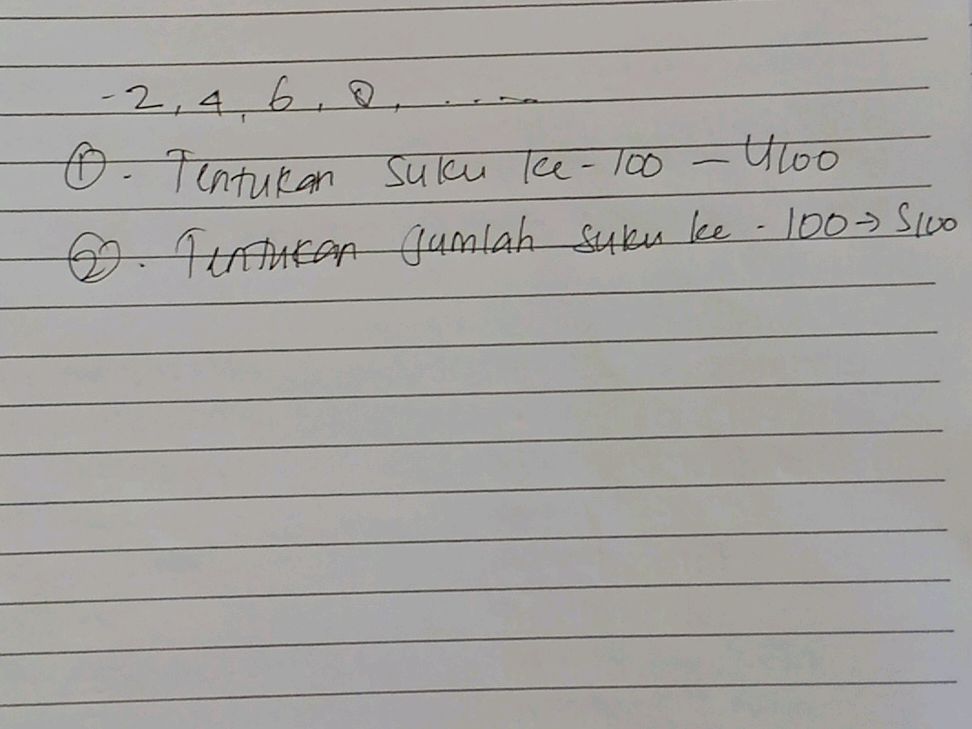 -2, 4, 6, 8, .....
①. Tentukan suku ke-100 – U100
②. Tentukan Jumlah suku ke - 100 → S100